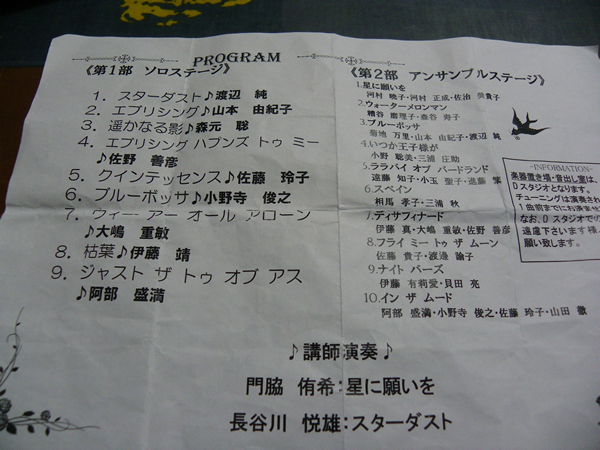 PROGRAM
《第1部 ソロステージ》
1. スターダスト♪渡辺 純
2. エブリシング♪山本 由紀子
3. 遥かなる影♪森元 聡
4. エブリシング ハプンズ トゥ ミー
♪佐野 善彦
5. クインテッセンス♪佐藤 玲子
6. ブルーボッサ♪小野寺 俊之
7. ウィー アー オール アローン
♪大嶋 重敏
8. 枯葉♪伊藤 靖
9. ジャスト ザ トゥ オブ アス
♪阿部 盛満
《第2部 アンサンブルステージ》
1.星に願いを
河村 暁子・河村 正成・佐治 美貴子
2.ウォーターメロンマン
糟谷 磨理子・森谷 寿子
3.ブルーボッサ
菊地 万里・山本 由紀子・渡辺 純
4.いつか王子様が
小野 聡美・三浦 庄助
5.ララバイ オブ バードランド
遠藤 知子・小玉 聖子・進藤 繁
6.スペイン
相馬 孝子・三浦 秋
7.ディサフィナード
伊藤 真・大嶋 重敏・佐野 善彦
8.フライ ミー トゥ ザ ムーン
佐藤 貴子・渡邉 諭子
9.ナイト バーズ
伊藤 有莉愛・貝田 亮
10.イン ザ ムード
阿部 盛満・小野寺 俊之・佐藤 玲子・山田 徹
~INFORMATION~
楽器置き場・音出し室は、
Dスタジオとなります。
チューニングは演奏され
1曲前までに
なお、Dスタジオでの
遠慮下さいます様
願い致します。
♪講師演奏♪
門脇 侑希:星に願いを
長谷川 悦雄:スターダスト